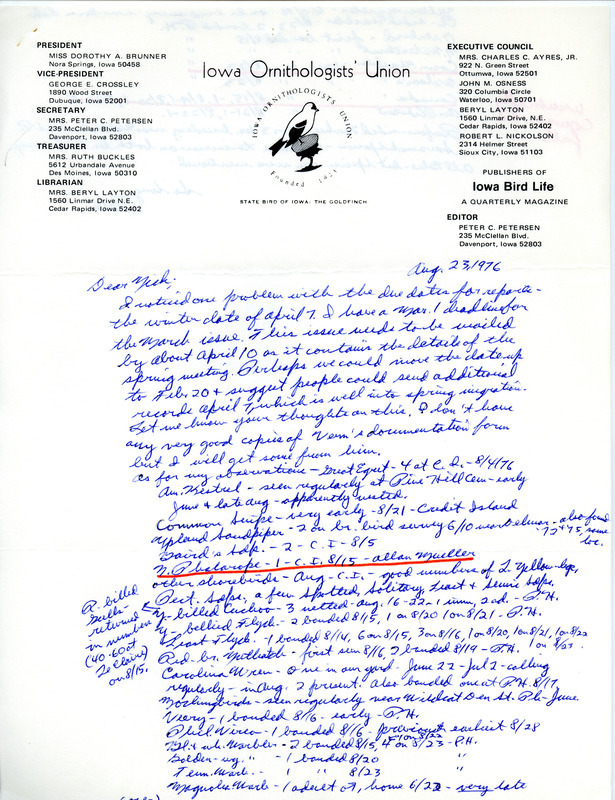 PRESIDENT
MISS DOROTHY A. BRUNNER
Nora Springs, Iowa 50458
VICE-PRESIDENT
GEORGE E. CROSSLEY
1890 Wood Street
Dubuque, Iowa 52001
SECRETARY
MRS. PETER C. PETERSEN
235 McClellan Blvd.
Davenport, Iowa 52803
TREASURER
MRS. RUTH BUCKLES
5612 Urbandale Avenue
Des Moines, Iowa 50310
LIBRARIAN
MRS. BERYL LAYTON
1560 Linmar Drive N.E.
Cedar Rapids, Iowa 52402
Iowa Ornithologists' Union
IOWA ORNITHOLOGISTS UNION
Founded 1923
STATE BIRD OF IOWA: THE GOLDFINCH
EXECUTIVE COUNCIL
MRS. CHARLES C. AYRES, JR.
922 N. Green Street
Ottumwa, Iowa 52501
JOHN M. OSNESS
320 Columbia Circle
Waterloo, Iowa 50701
BERYL LAYTON
1560 Linmar Drive, N.E.
Cedar Rapids, Iowa 52402
ROBERT L. NICKOLSON
2314 Helmer Street
Sioux City, Iowa 51103
PUBLISHERS OF
Iowa Bird Life
A QUARTERLY MAGAZINE
EDITOR
PETER C. PETERSEN
235 McClellan Blvd.
Davenport, Iowa 52803
Aug. 23, 1976
Dear Nick;
I noticed one problem with the due dates for reports-
the winter date of April 7. I have a Mar. 1 deadline for
the March issue. This issue needs to be mailed
by about April 10 as it contains the details of the
spring meeting. Perhaps we could move the date up
to Feb. 20 & suggest people could send additional
records April 7, which is well into spring migration.
Let me know your thoughts on this. I don't have
any very good copies of Vern's documentation form
but I will get some from him.
As for my observations - Great Egret - 4 at C.I. - 8/4/76
Am. Kestrel - seen regularly at Pine Hill Cem - early
June & late Aug - apparently nested.
Common Snipe - very early - 8/21 - Credit Island
Upland Sandpiper - 2 on br. bird survey 6/10 near - also found
74 & 75, same
loc.
Baird's Sdp. - 2 - C.I. - 8/5
N. Phalarope - 1 - C.I. 8/15 - Allan Mueller
other shorebirds - Aug - C.I. - good numbers of L. Yellow-legs,
Pect. Sdps, a few Spotted, Solitary, Least & Semi Sdps.
R. billed
Gulls -
returned
in number
(40-60 at
LeClaire)
on 8/15.
Y-billed Cuckoo - 3 netted - Aug. 16-22 - 1 imm, 2 ad. - P.H.
Y-bellied Flyc - 2 banded 8/15, 1 on 8/20 1 on 8/21 - P.H.
Least Flyc. - 1 banded 8/14, 6 on 8/15, 3 on 8/16, 1 on 8/20, 1 on 8/21, 1 on 8/22
1 on 8/23
Red-br. Nuthatch - first seen 8/16, 2 banded 8/19 - P.H.
Carolina Wren - One in our yard - June 22 - Jul 2 - calling
regularly - in Aug. 2 present. Also banded one at P.H. 8/17.
Mockingbirds - seen regularly near Wildcat Den St. Pk - June
Veery - 1 banded 8/16 - early - P.H.
Phil. Vireo - 1 banded 8/16 - previous earliest 8/28
1 on 8/22
Bl. & wh. Warbler - 2 banded 8/15, 4 on 8/23 - P.H.
Golden-wg. " - 1 banded 8/20 "
Tenn. Warb. - 1 " 8/23 "
Magnolia Warb - 1 adult ♂, home 6/2 - very late